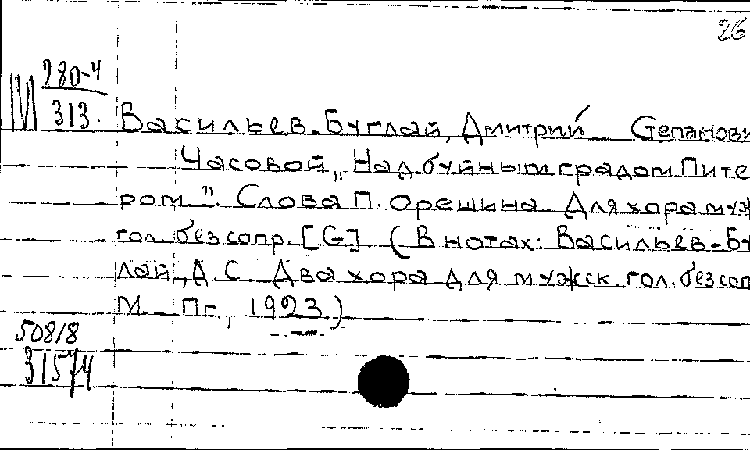 26
М 280-4
313.
Васильев-Буглай, Дмитрий Степанови
Часовой „Над буйным градом Пите
ром". Слова П. Орешина. Для хора муж
гол. без сопр. [G] (В нотах: Васильев-Бу
лай, Д. С. Два хора для мужск. гол. без соп
М. Пг., 1923.)
50818
31574